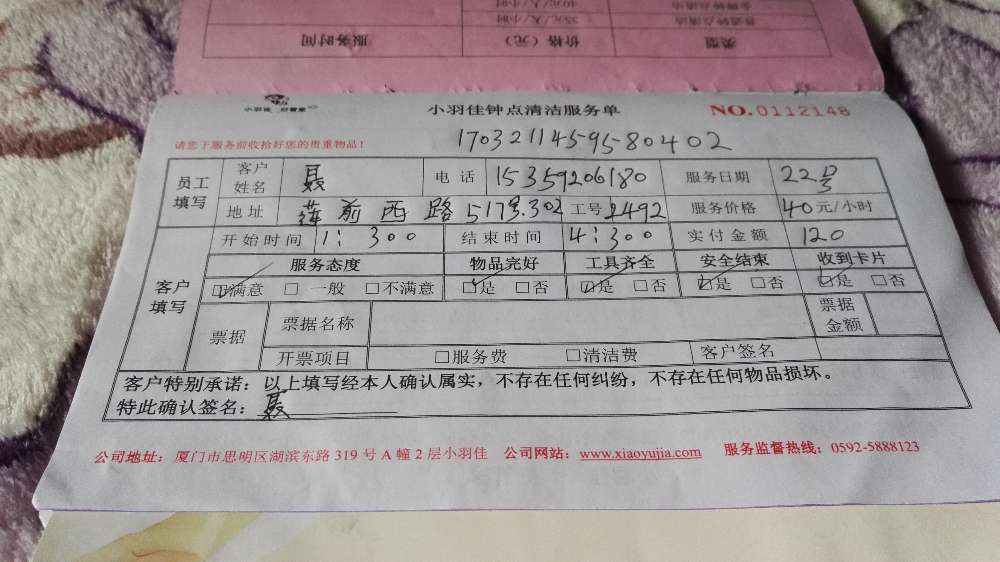 服务时间 价格（元） 类型
35元/人/小时 普通钟点清洁
40元/人/小时 金牌钟点清洁
小羽佳 好管家
小羽佳钟点清洁服务单 NO.0112148
1703211459580402
请您于服务前收拾好您的贵重物品！
员工填写 客户姓名 聂 电话 15359206180 服务日期 22/3
地址 莲前西路517号.302 工号 2492 服务价格 40元/小时
开始时间 1:300 结束时间 4:300 实付金额 120
服务态度 物品完好 工具齐全 安全结束 收到卡片
客户填写 ☑满意 □ 一般 □不满意 ☑是 □否 ☑是 □否 ☑是 □否 ☑是 □否
票据 票据名称 票据金额
开票项目 □服务费 □清洁费 客户签名
客户特别承诺：以上填写经本人确认属实，不存在任何纠纷，不存在任何物品损坏。
特此确认签名：聂
公司地址：厦门市思明区湖滨东路 319 号 A 幢 2 层小羽佳 公司网站：www.xiaoyujia.com 服务监督热线：0592-5888123